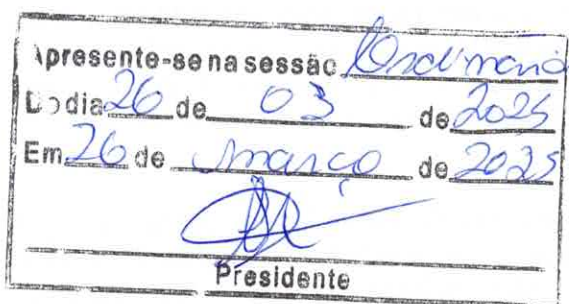 Apresente-se na sessão Ordinária
Do dia 26 de 03 de 2025
Em 26 de março de 2025
Presidente